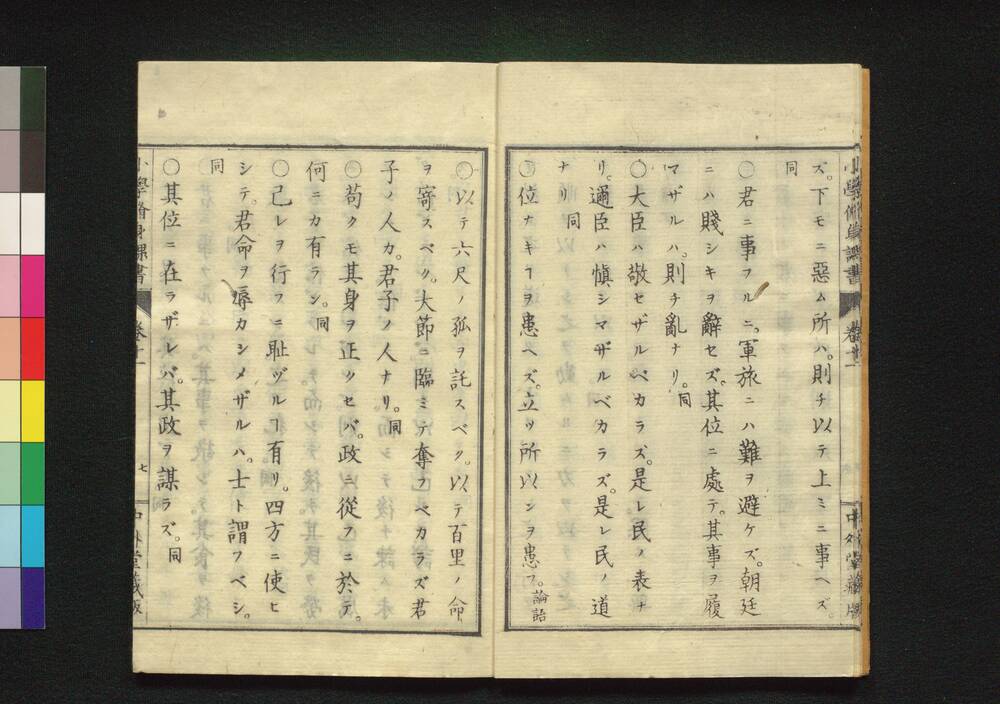 小學脩身課書 卷十二 中外堂藏版
ズ。下モニ惡ム所ハ。則チ以テ上ミニ事ヘズ。
同
〇君ニ事フルニ。軍旅ニハ難ヲ避ケズ。朝廷
ニハ賤シキヲ辭セズ。其位ニ處テ。其事ヲ履
マザルハ。則チ亂ナリ。同
〇大臣ハ敬セザルベカラズ。是レ民ノ表ナ
リ。邇臣ハ愼シマザルベカラズ。是レ民ノ道
ナリ 同
〇位ナキヿヲ患ヘズ。立ツ所以ンヲ患フ。論語
〇以テ六尺ノ孤ヲ託スベク。以テ百里ノ命
ヲ寄スベク。大節ニ臨ミテ奪フベカラズ君
子ノ人カ。君子ノ人ナリ。同
〇苟クモ其身ヲ正ツセバ。政ニ從フニ於テ。
何ニカ有ラン。同
〇己レヲ行フニ耻ヅルヿ有リ。四方ニ使ヒ
シテ。君命ヲ辱カシメザルハ。士ト謂フベシ。
同
〇其位ニ在ラザレバ。其政ヲ謀ラズ。同
小學脩身課書 卷十二 七 中外堂藏版